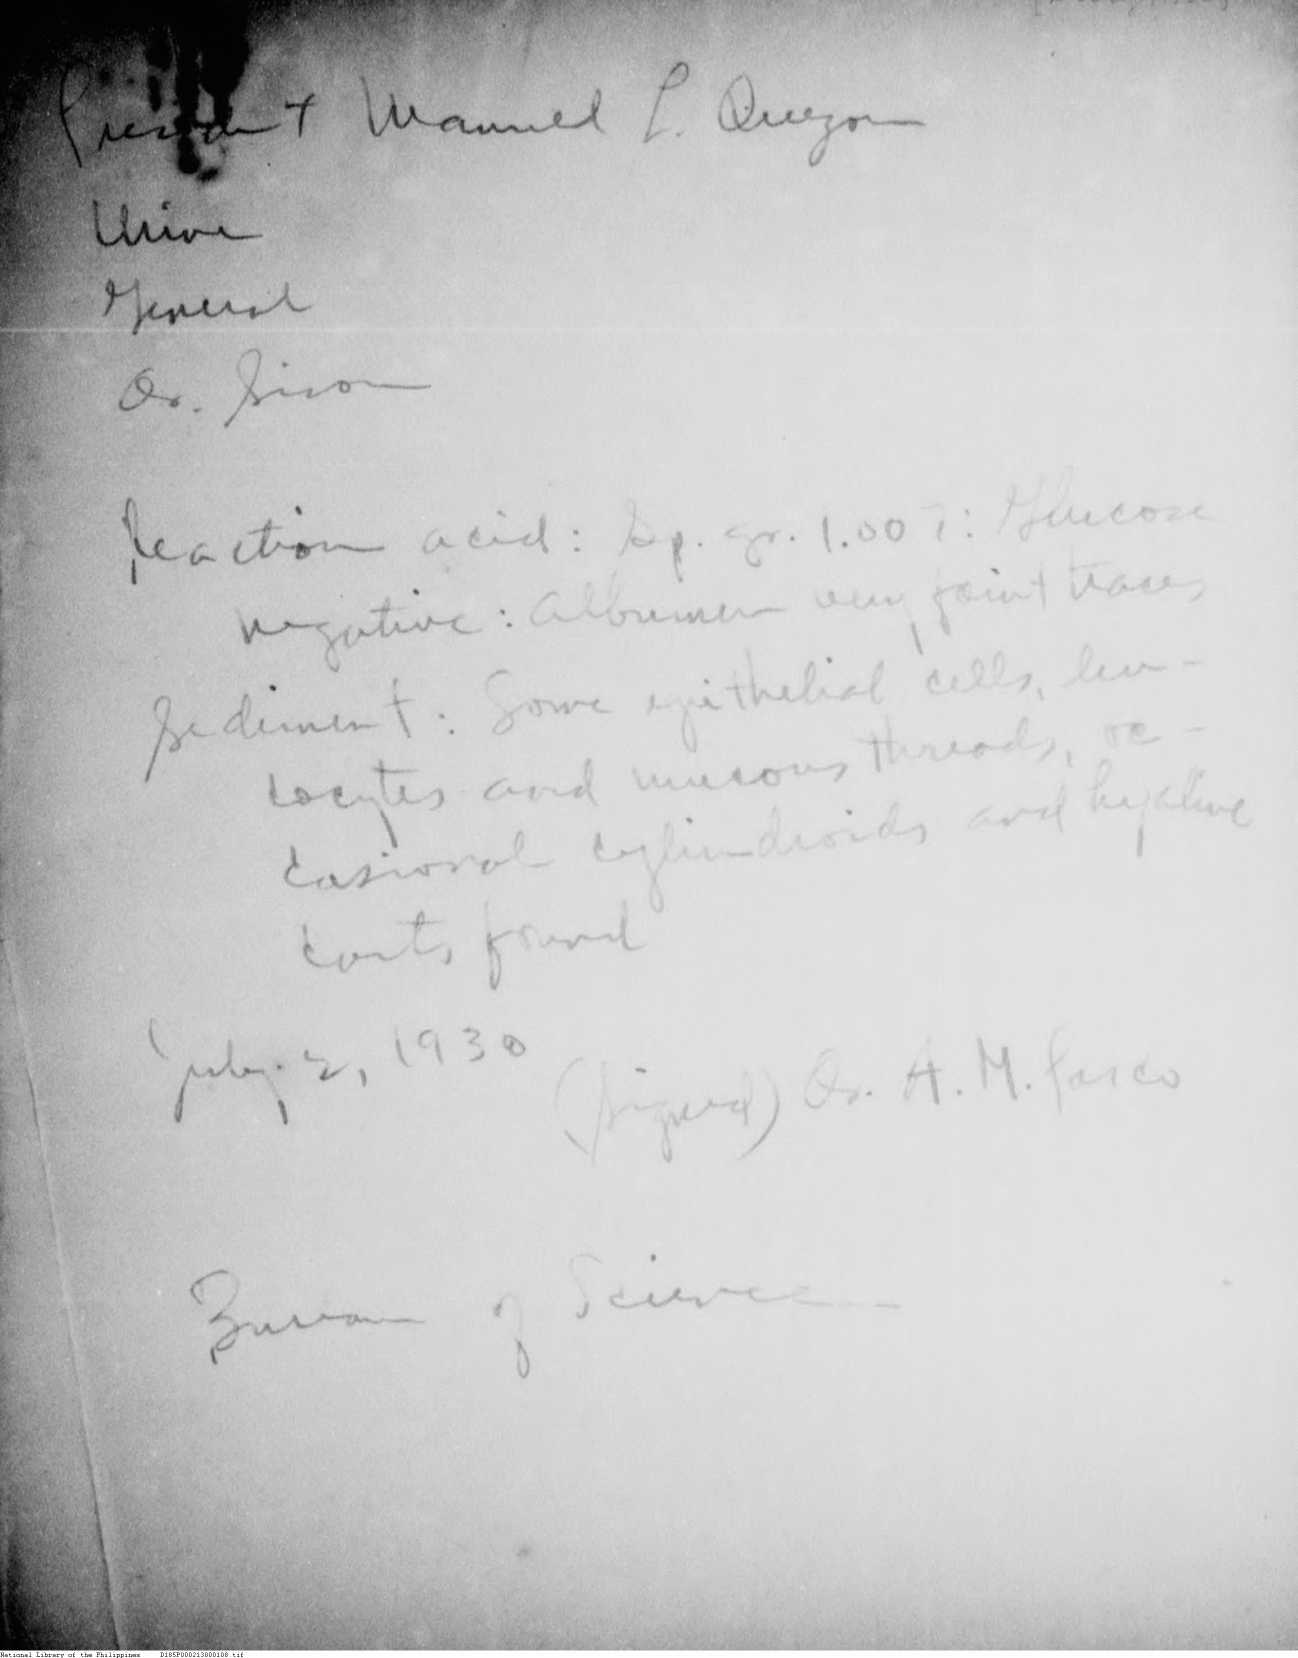 President Manuel L. Quezon
Urine
General
Dr. Sison
Reaction acid: Sp. gr. 1.007: Glucose
negative: Albumen very faint traces
Sediment: Some epithelial cells, leu-
cocytes and mucous threads, oc-
casional cylindroids and hyaline
casts found
July 2, 1930
(Signed) Dr. A. M. Pasco
Bureau of Science
National Library of the Philippines D185P000213800108.tif